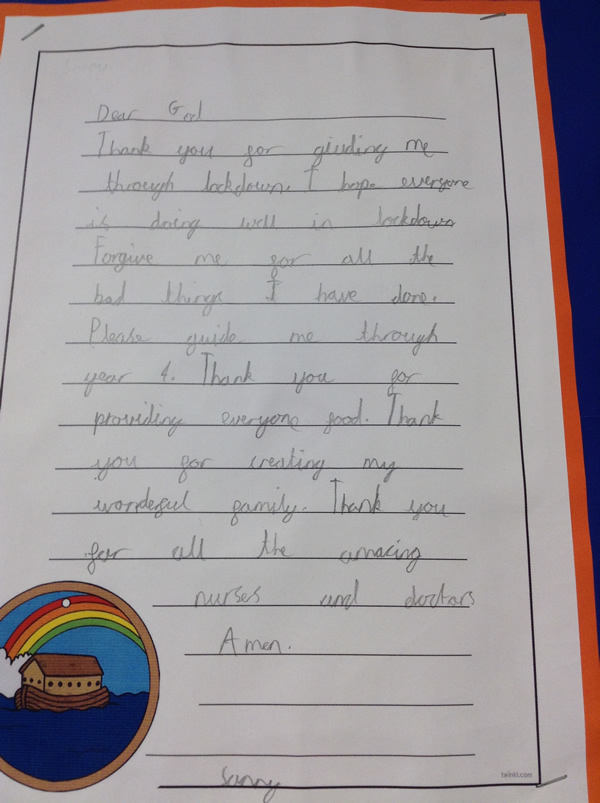 Dear God
Thank you for giuding me
through lockdown. I hope everyone
is doing well in lockdown
Forgive me for all the
bad things I have done.
Please guide me through
year 4. Thank you for
providing everyone food. Thank
you for creating my
wonderful family. Thank you
for all the amazing
nurses and doctors
Amen.
Sunny
twinkl.com